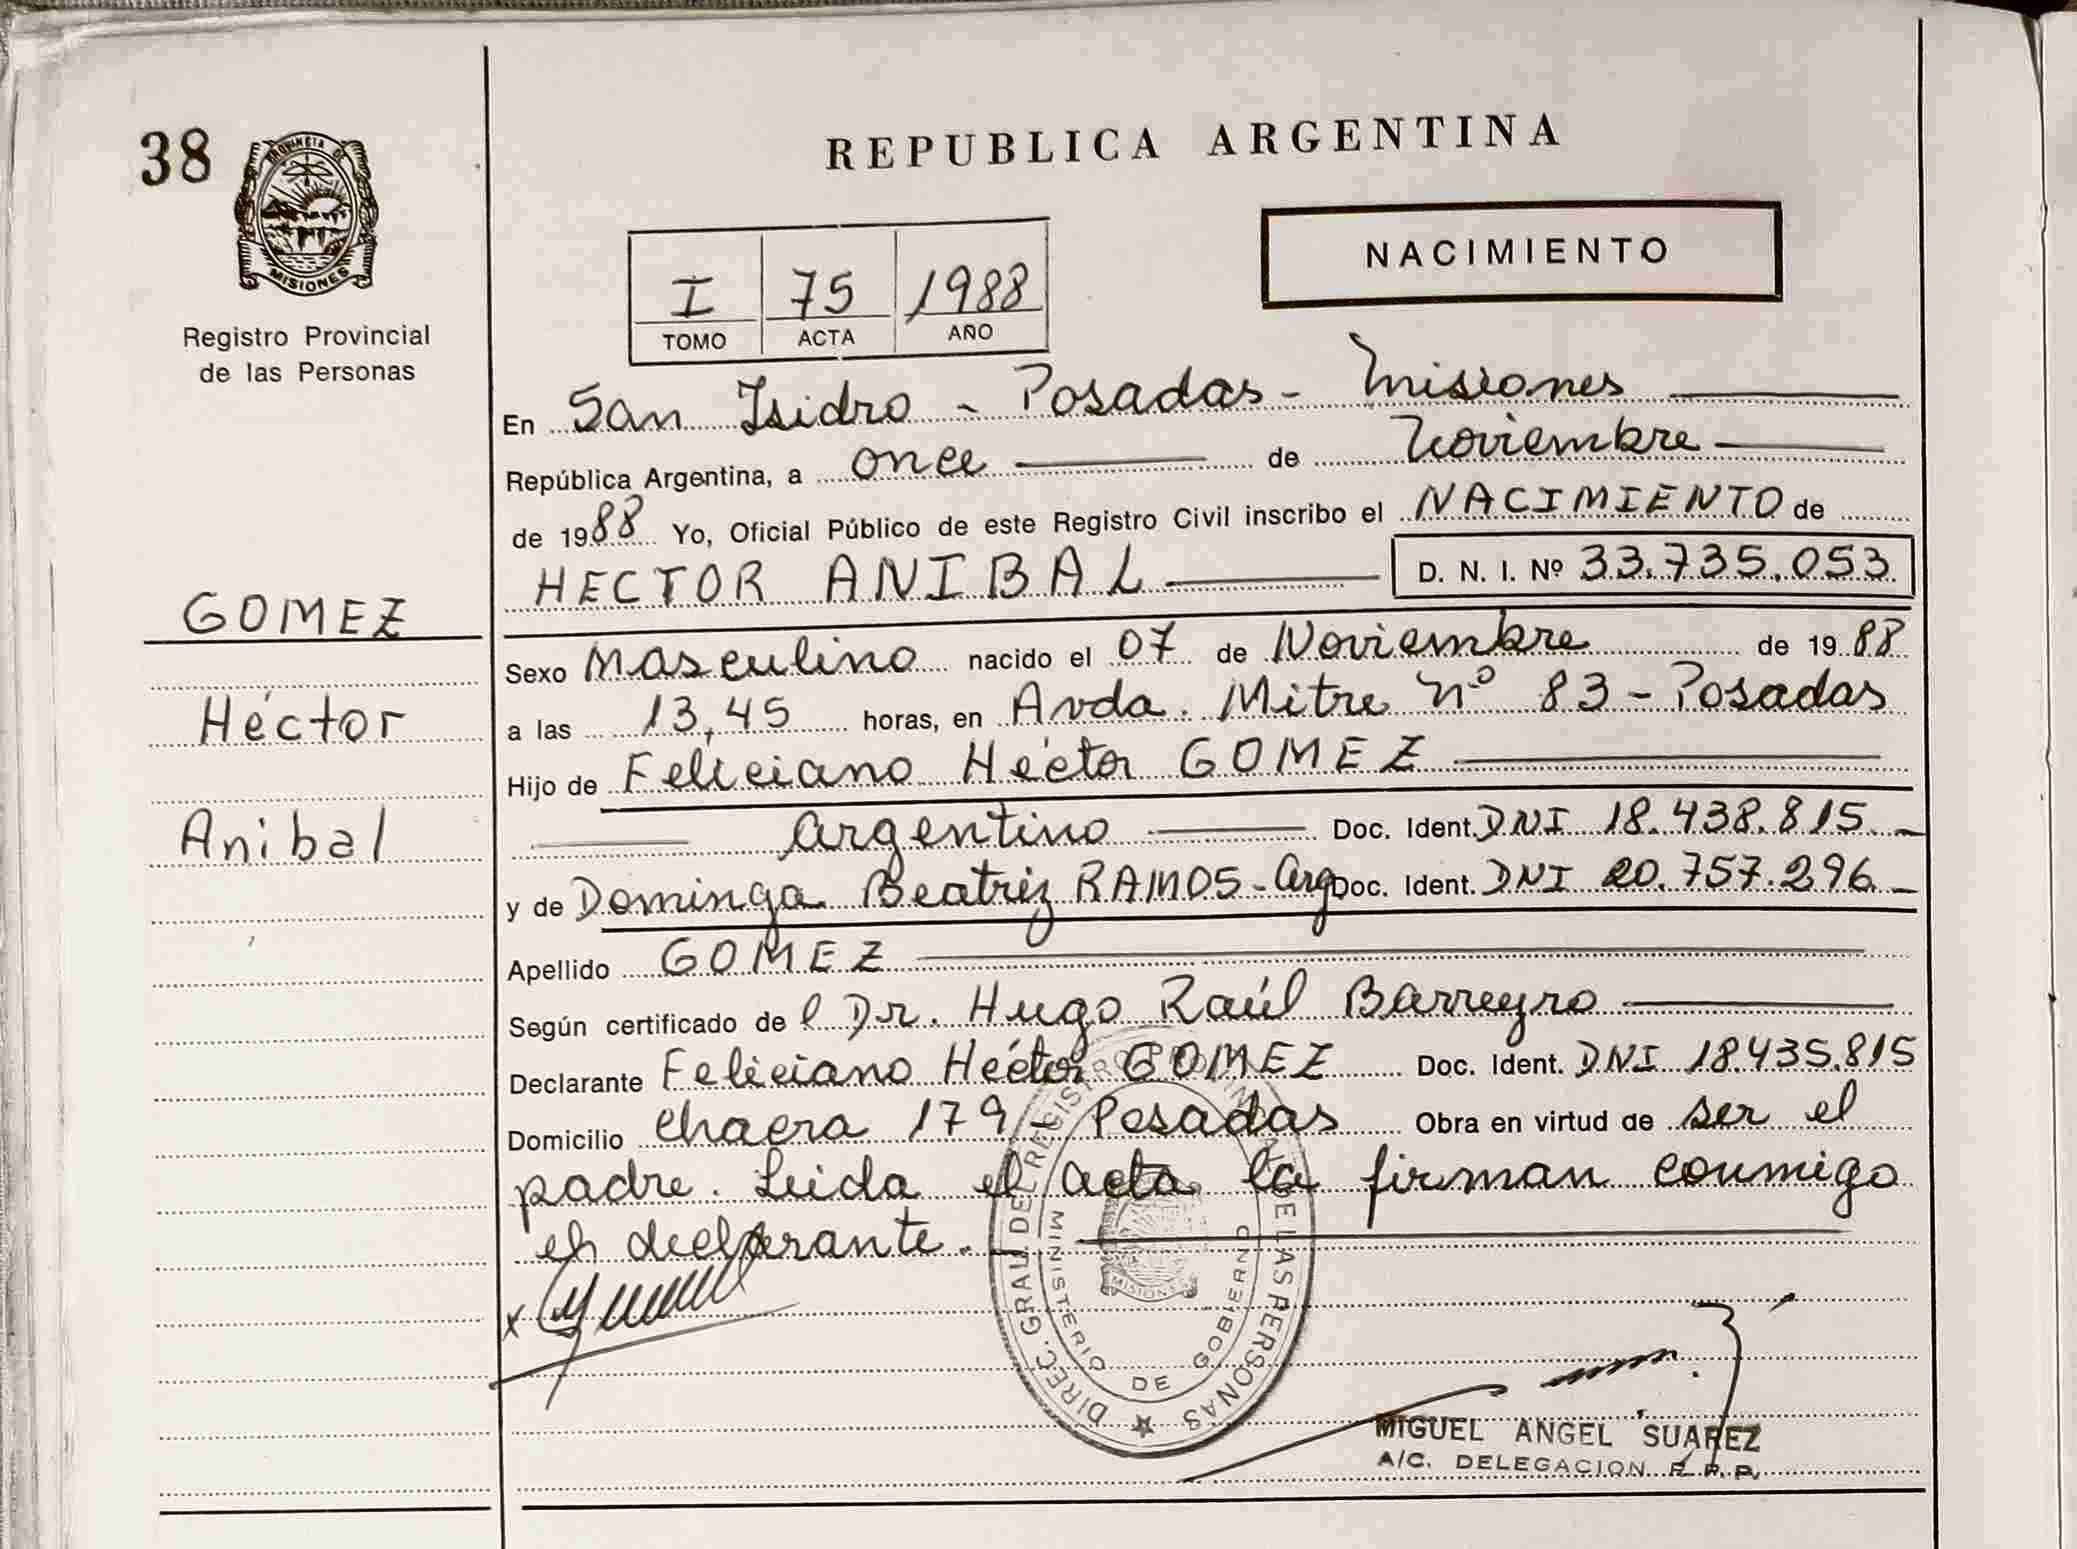 38
PROVINCIA DE
MISIONES
Registro Provincial
de las Personas
REPUBLICA ARGENTINA
NACIMIENTO
I 75 1988
TOMO ACTA AÑO
En San Isidro - Posadas - Misiones
República Argentina, a once de Noviembre
de 1988 Yo, Oficial Público de este Registro Civil inscribo el NACIMIENTO de
HECTOR ANIBAL D. N. I. Nº 33.735.053
GOMEZ
Héctor
Anibal
Sexo Masculino nacido el 07 de Noviembre de 1988
a las 13,45 horas, en Avda. Mitre Nº 83 - Posadas
Hijo de Feliciano Héctor GOMEZ
argentino Doc. Ident. DNI 18.438.815
y de Dominga Beatriz RAMOS - Arg Doc. Ident. DNI 20.757.296
Apellido GOMEZ
Según certificado de l Dr. Hugo Raúl Barreyro
Declarante Feliciano Héctor GOMEZ Doc. Ident. DNI 18.435.815
Domicilio Chacra 179 - Posadas Obra en virtud de ser el
padre. Leida el acta la firman conmigo
el declarante.
DIREC. GRAL. DE REGISTRO DE LAS PERSONAS
MINISTERIO DE GOBIERNO
MISIONES
MIGUEL ANGEL SUAREZ
A/C. DELEGACION R. P. P.